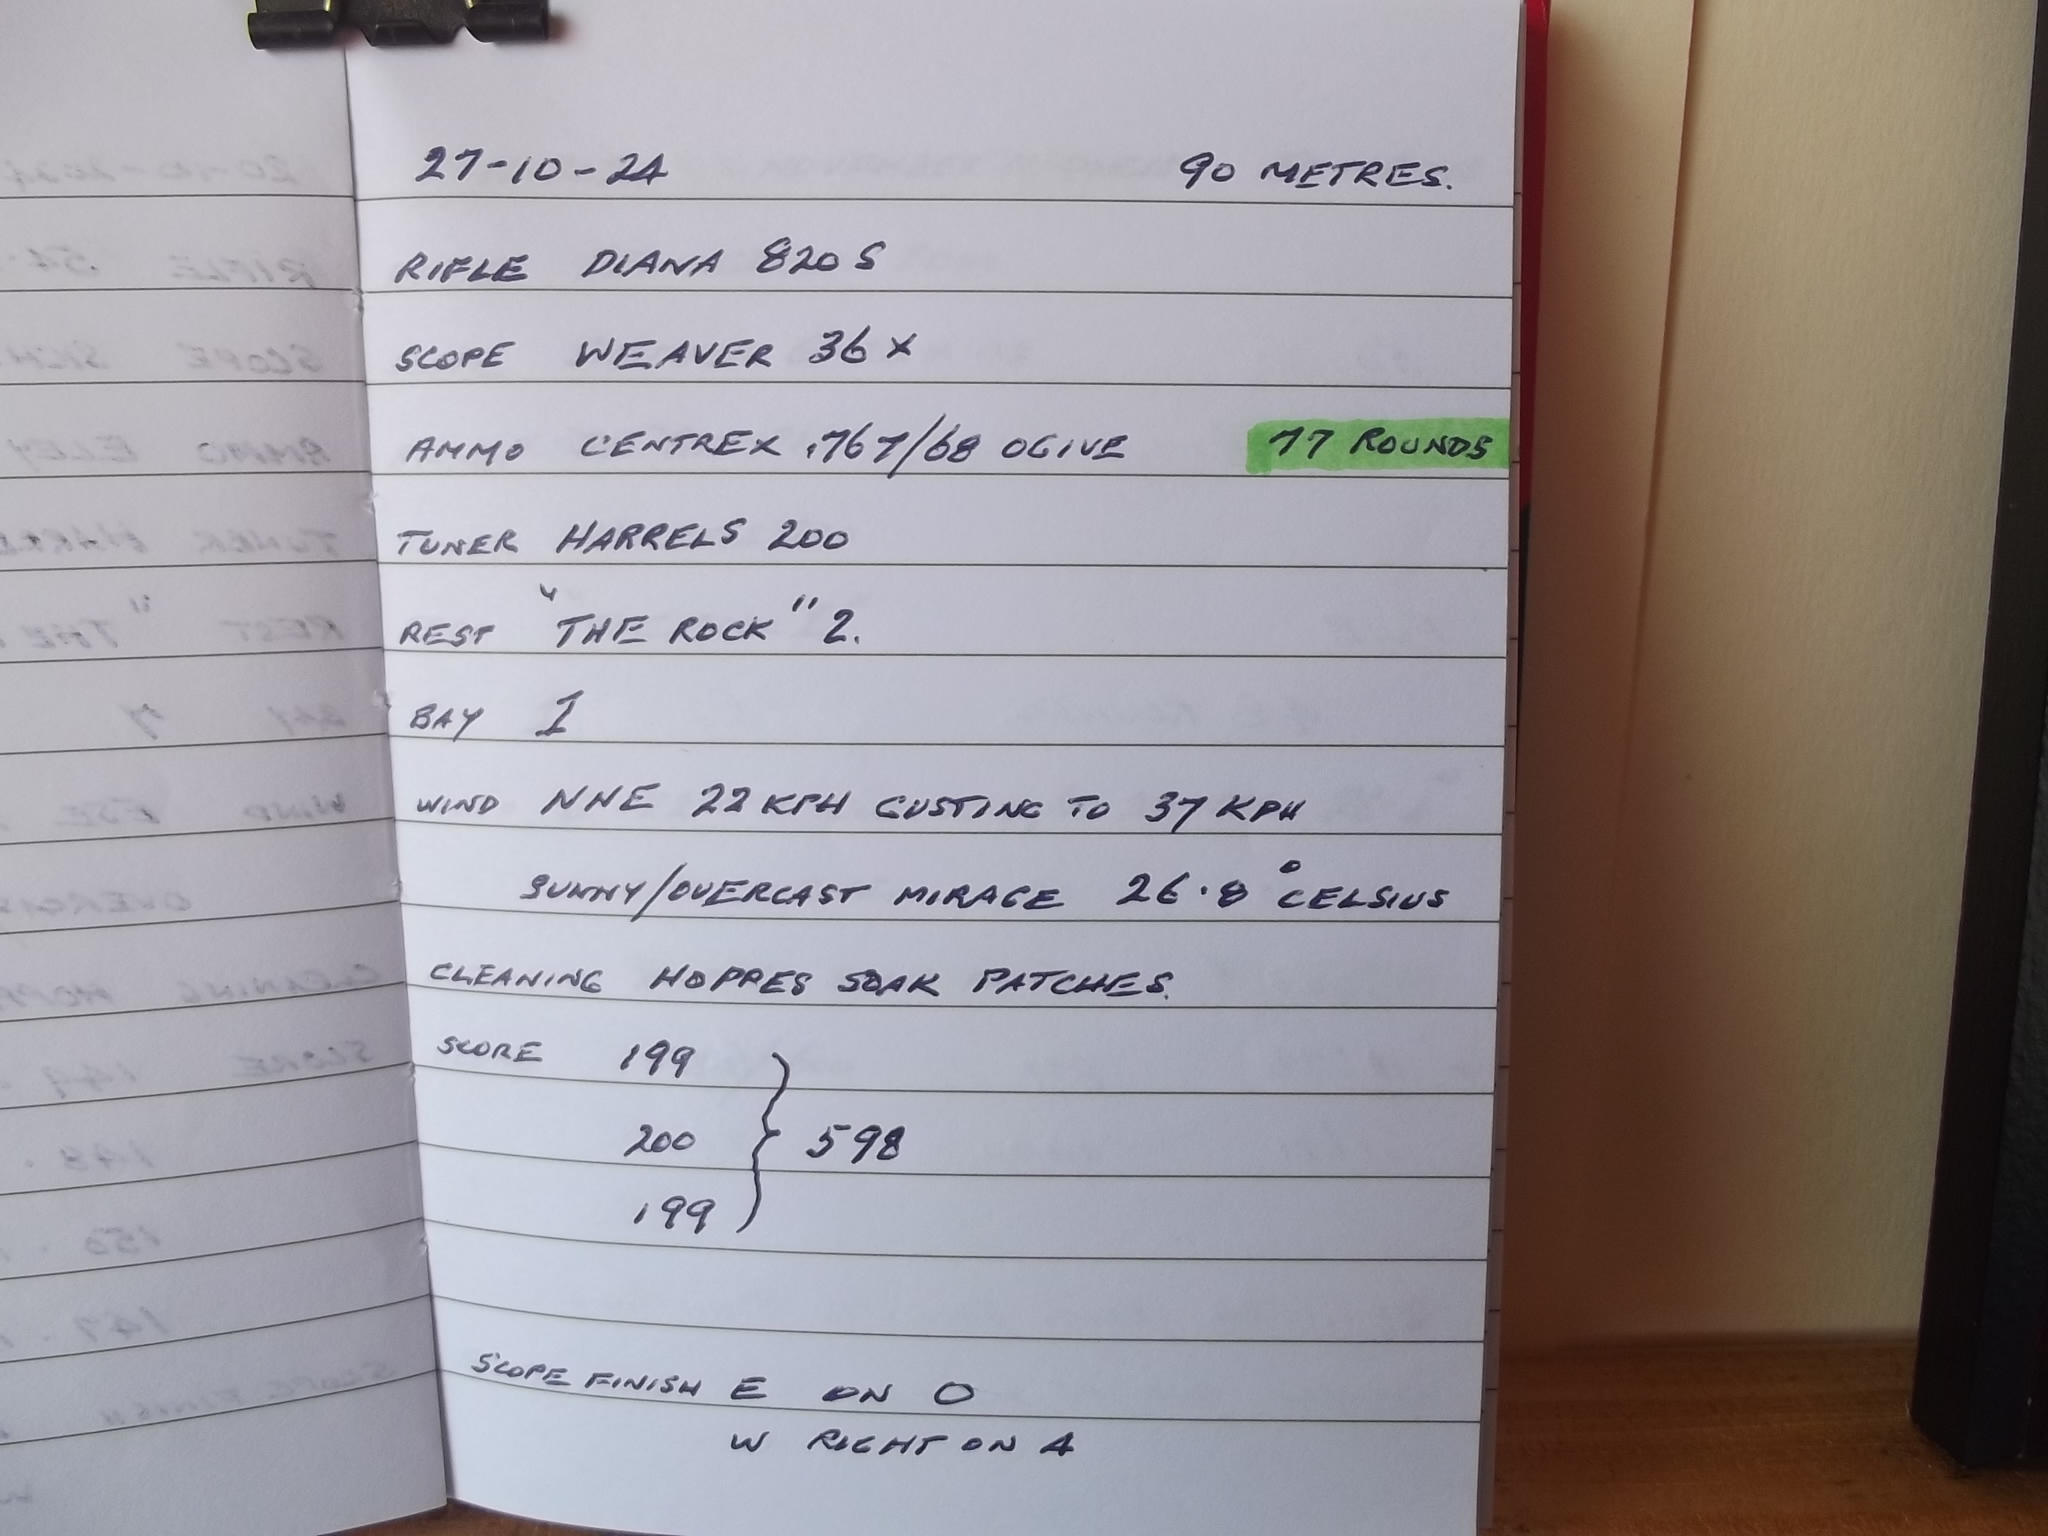 27-10-24 90 METRES.
RIFLE DIANA 820 S
SCOPE WEAVER 36 X
AMMO CENTREX .767/68 OGIVE 77 ROUNDS
TUNER HARRELS 200
REST "THE ROCK" 2.
BAY 1
WIND NNE 22 KPH GUSTING TO 37 KPH
SUNNY/OVERCAST MIRAGE 26.8 °CELSIUS
CLEANING HOPPES SOAK PATCHES.
SCORE 199
200 } 598
199
SCOPE FINISH E ON O
W RIGHT ON 4